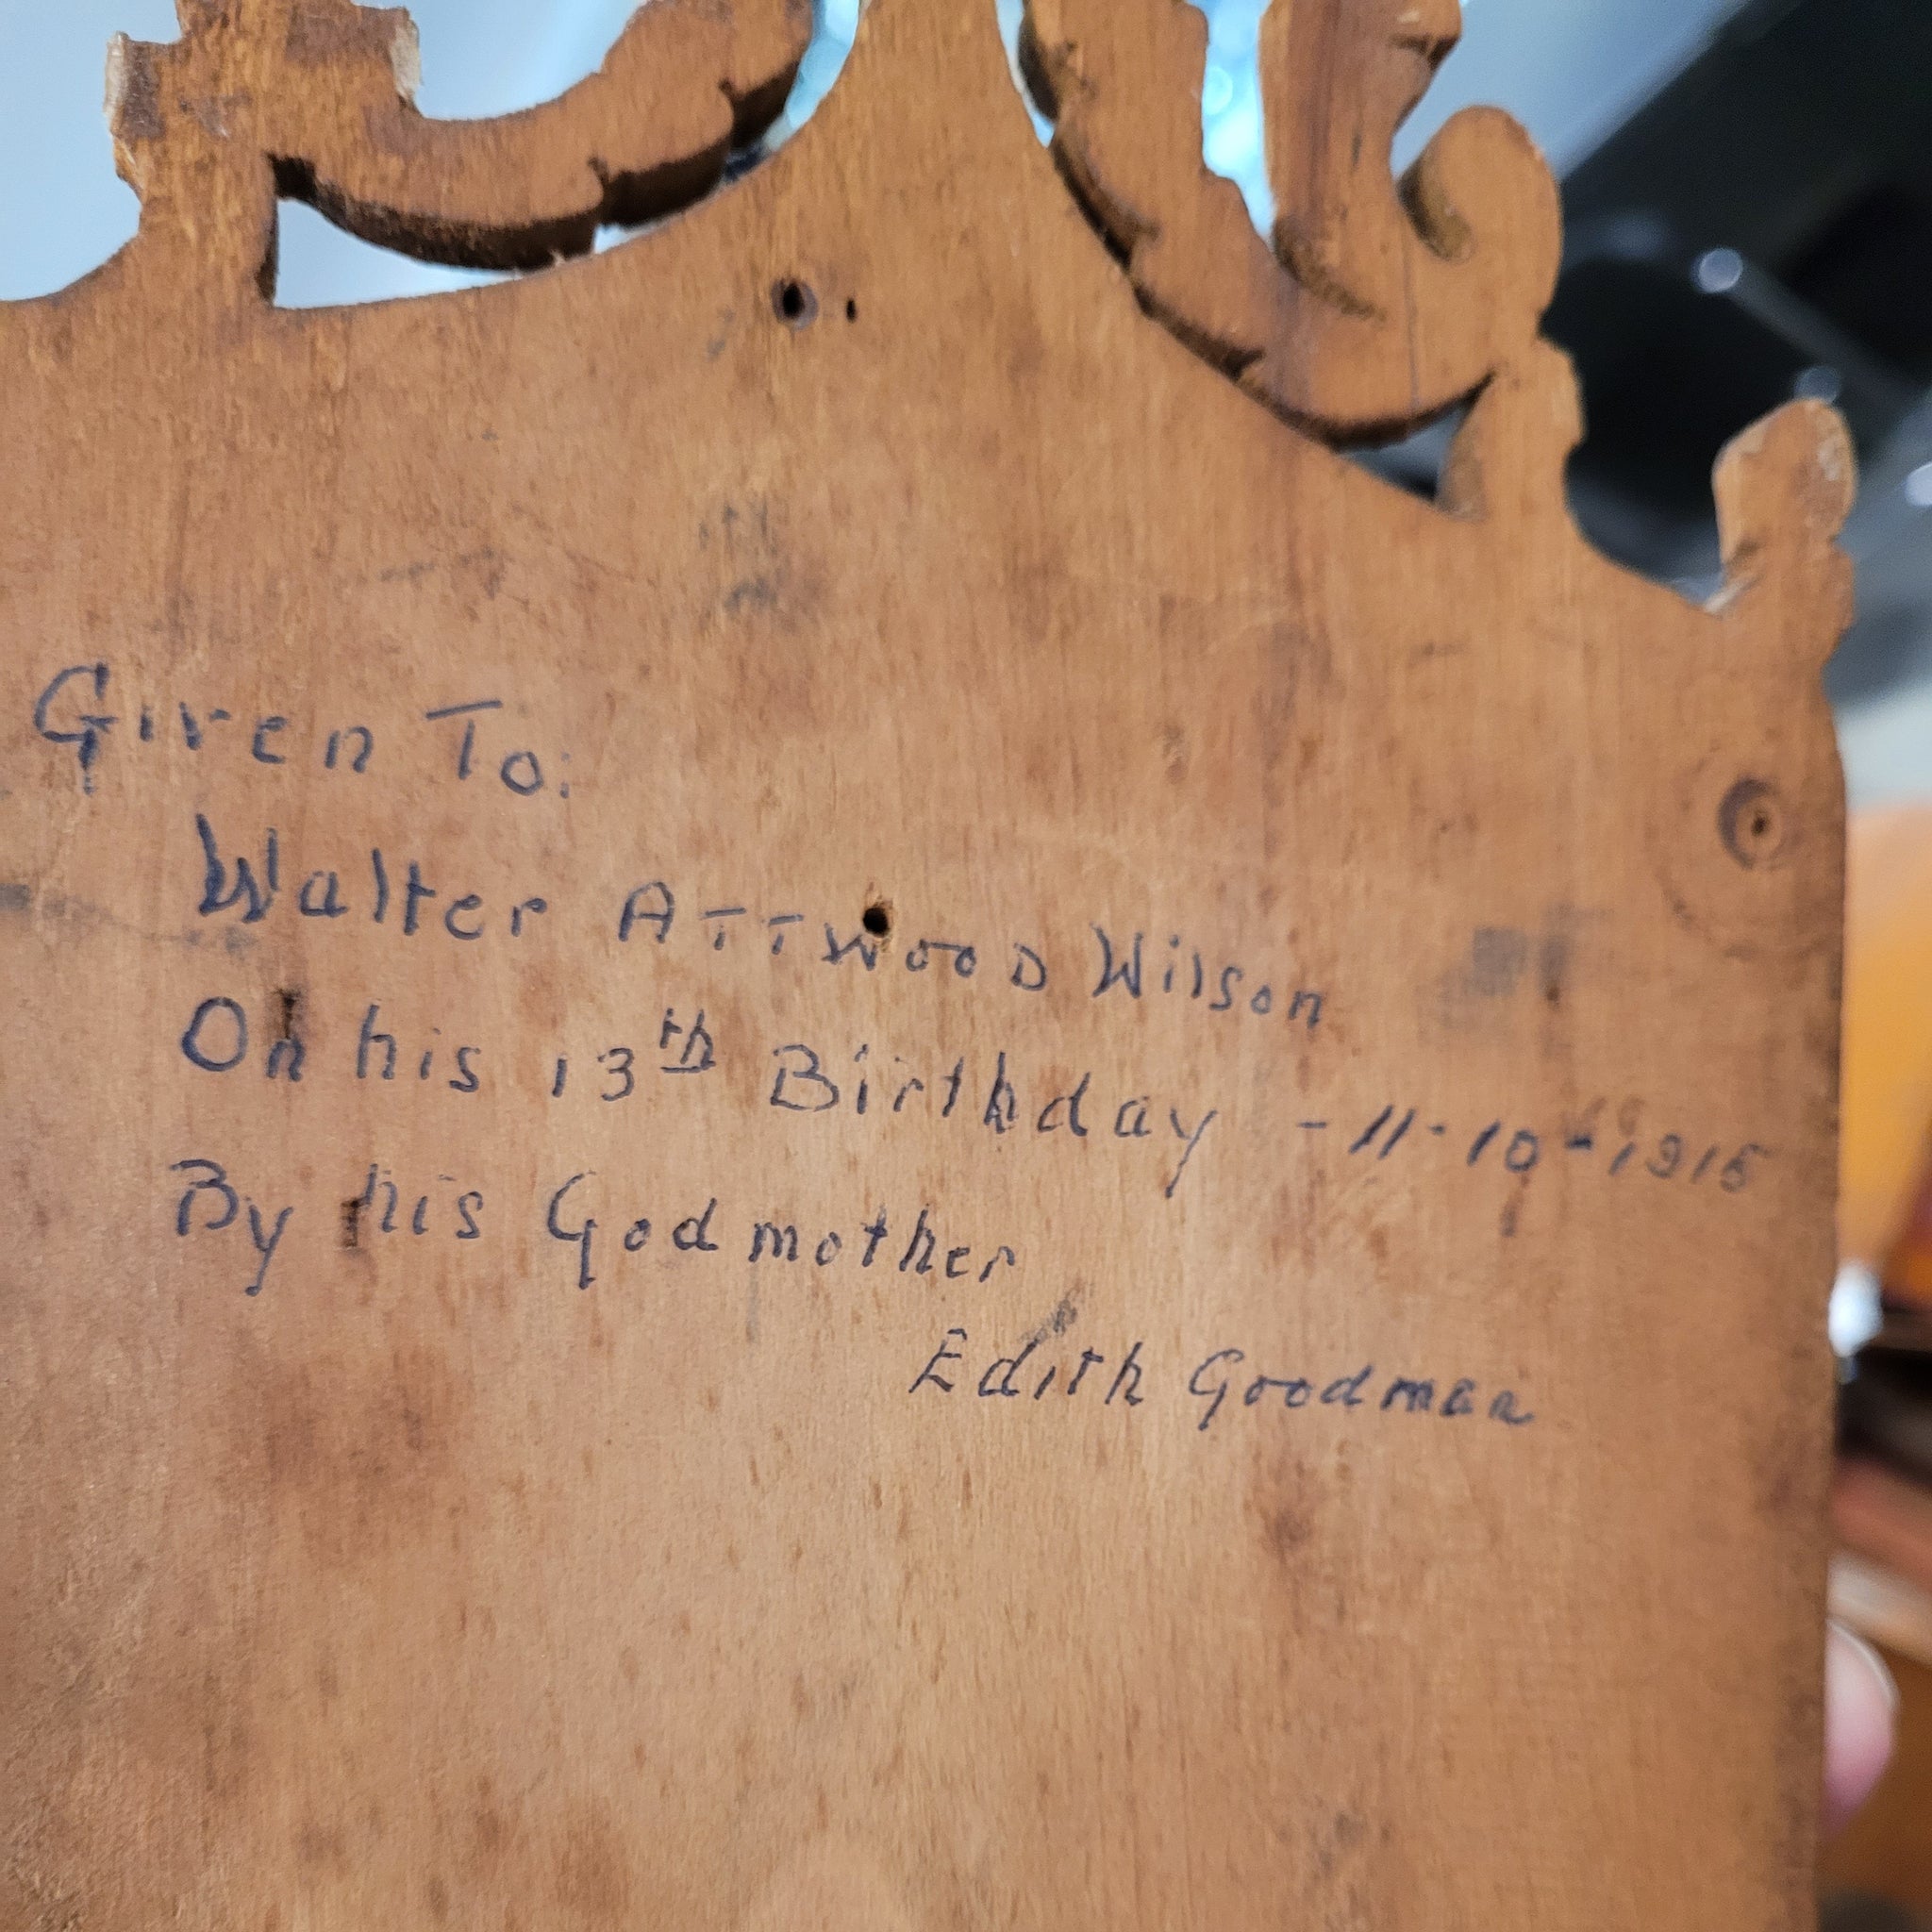 Given To:
Walter ATTWOOD Wilson
On his 13th Birthday - 11-10-1915
By his Godmother
Edith Goodman